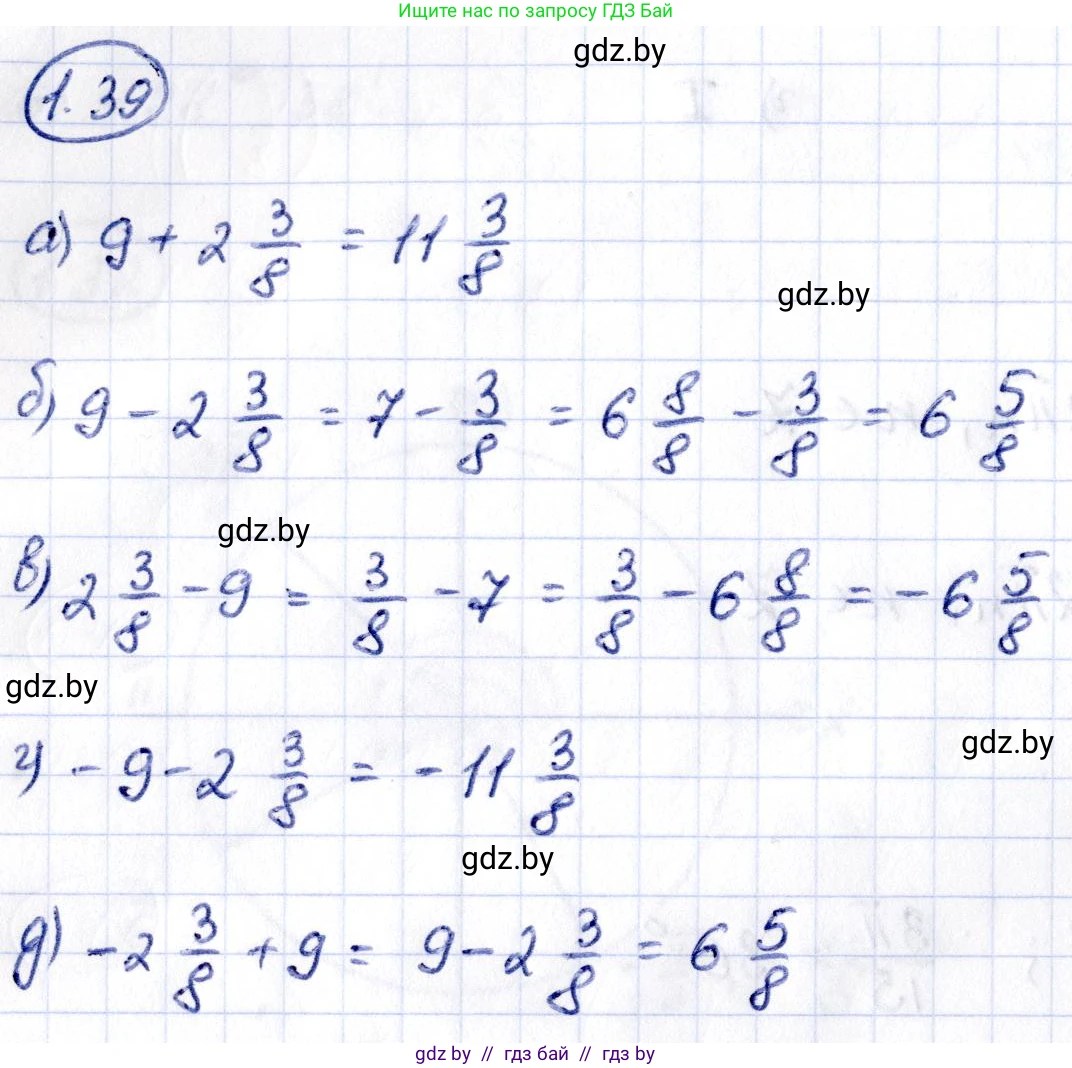 Ищите нас по запросу ГДЗ Бай
gdz.by
1.39
а) 9 + 2 3/8 = 11 3/8
gdz.by
б) 9 - 2 3/8 = 7 - 3/8 = 6 8/8 - 3/8 = 6 5/8
gdz.by
в) 2 3/8 - 9 = 3/8 - 7 = 3/8 - 6 8/8 = - 6 5/8
gdz.by
г) - 9 - 2 3/8 = - 11 3/8
gdz.by
gdz.by
д) - 2 3/8 + 9 = 9 - 2 3/8 = 6 5/8
gdz.by // гдз бай // гдз by